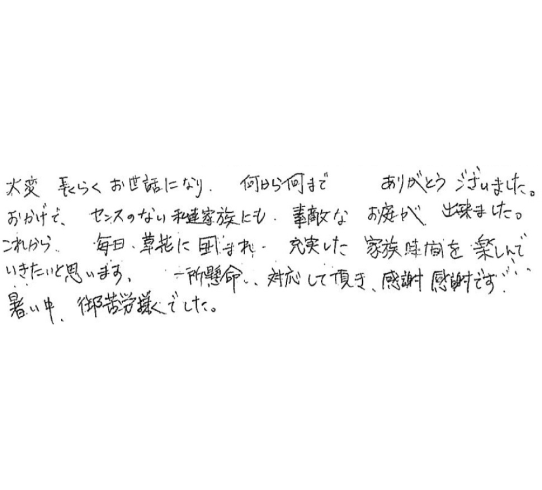 大変 長らく お世話になり、 何から何まで ありがとう ございました。
おかげで、 センスのない 私達家族にも、 素敵な お庭が、 出来ました。
これから、 毎日、草花に 囲まれ、 充実した 家族時間を 楽しんで
いきたいと思います。 一所懸命、、対応して頂き、感謝 感謝です…
暑い中、御苦労様でした。